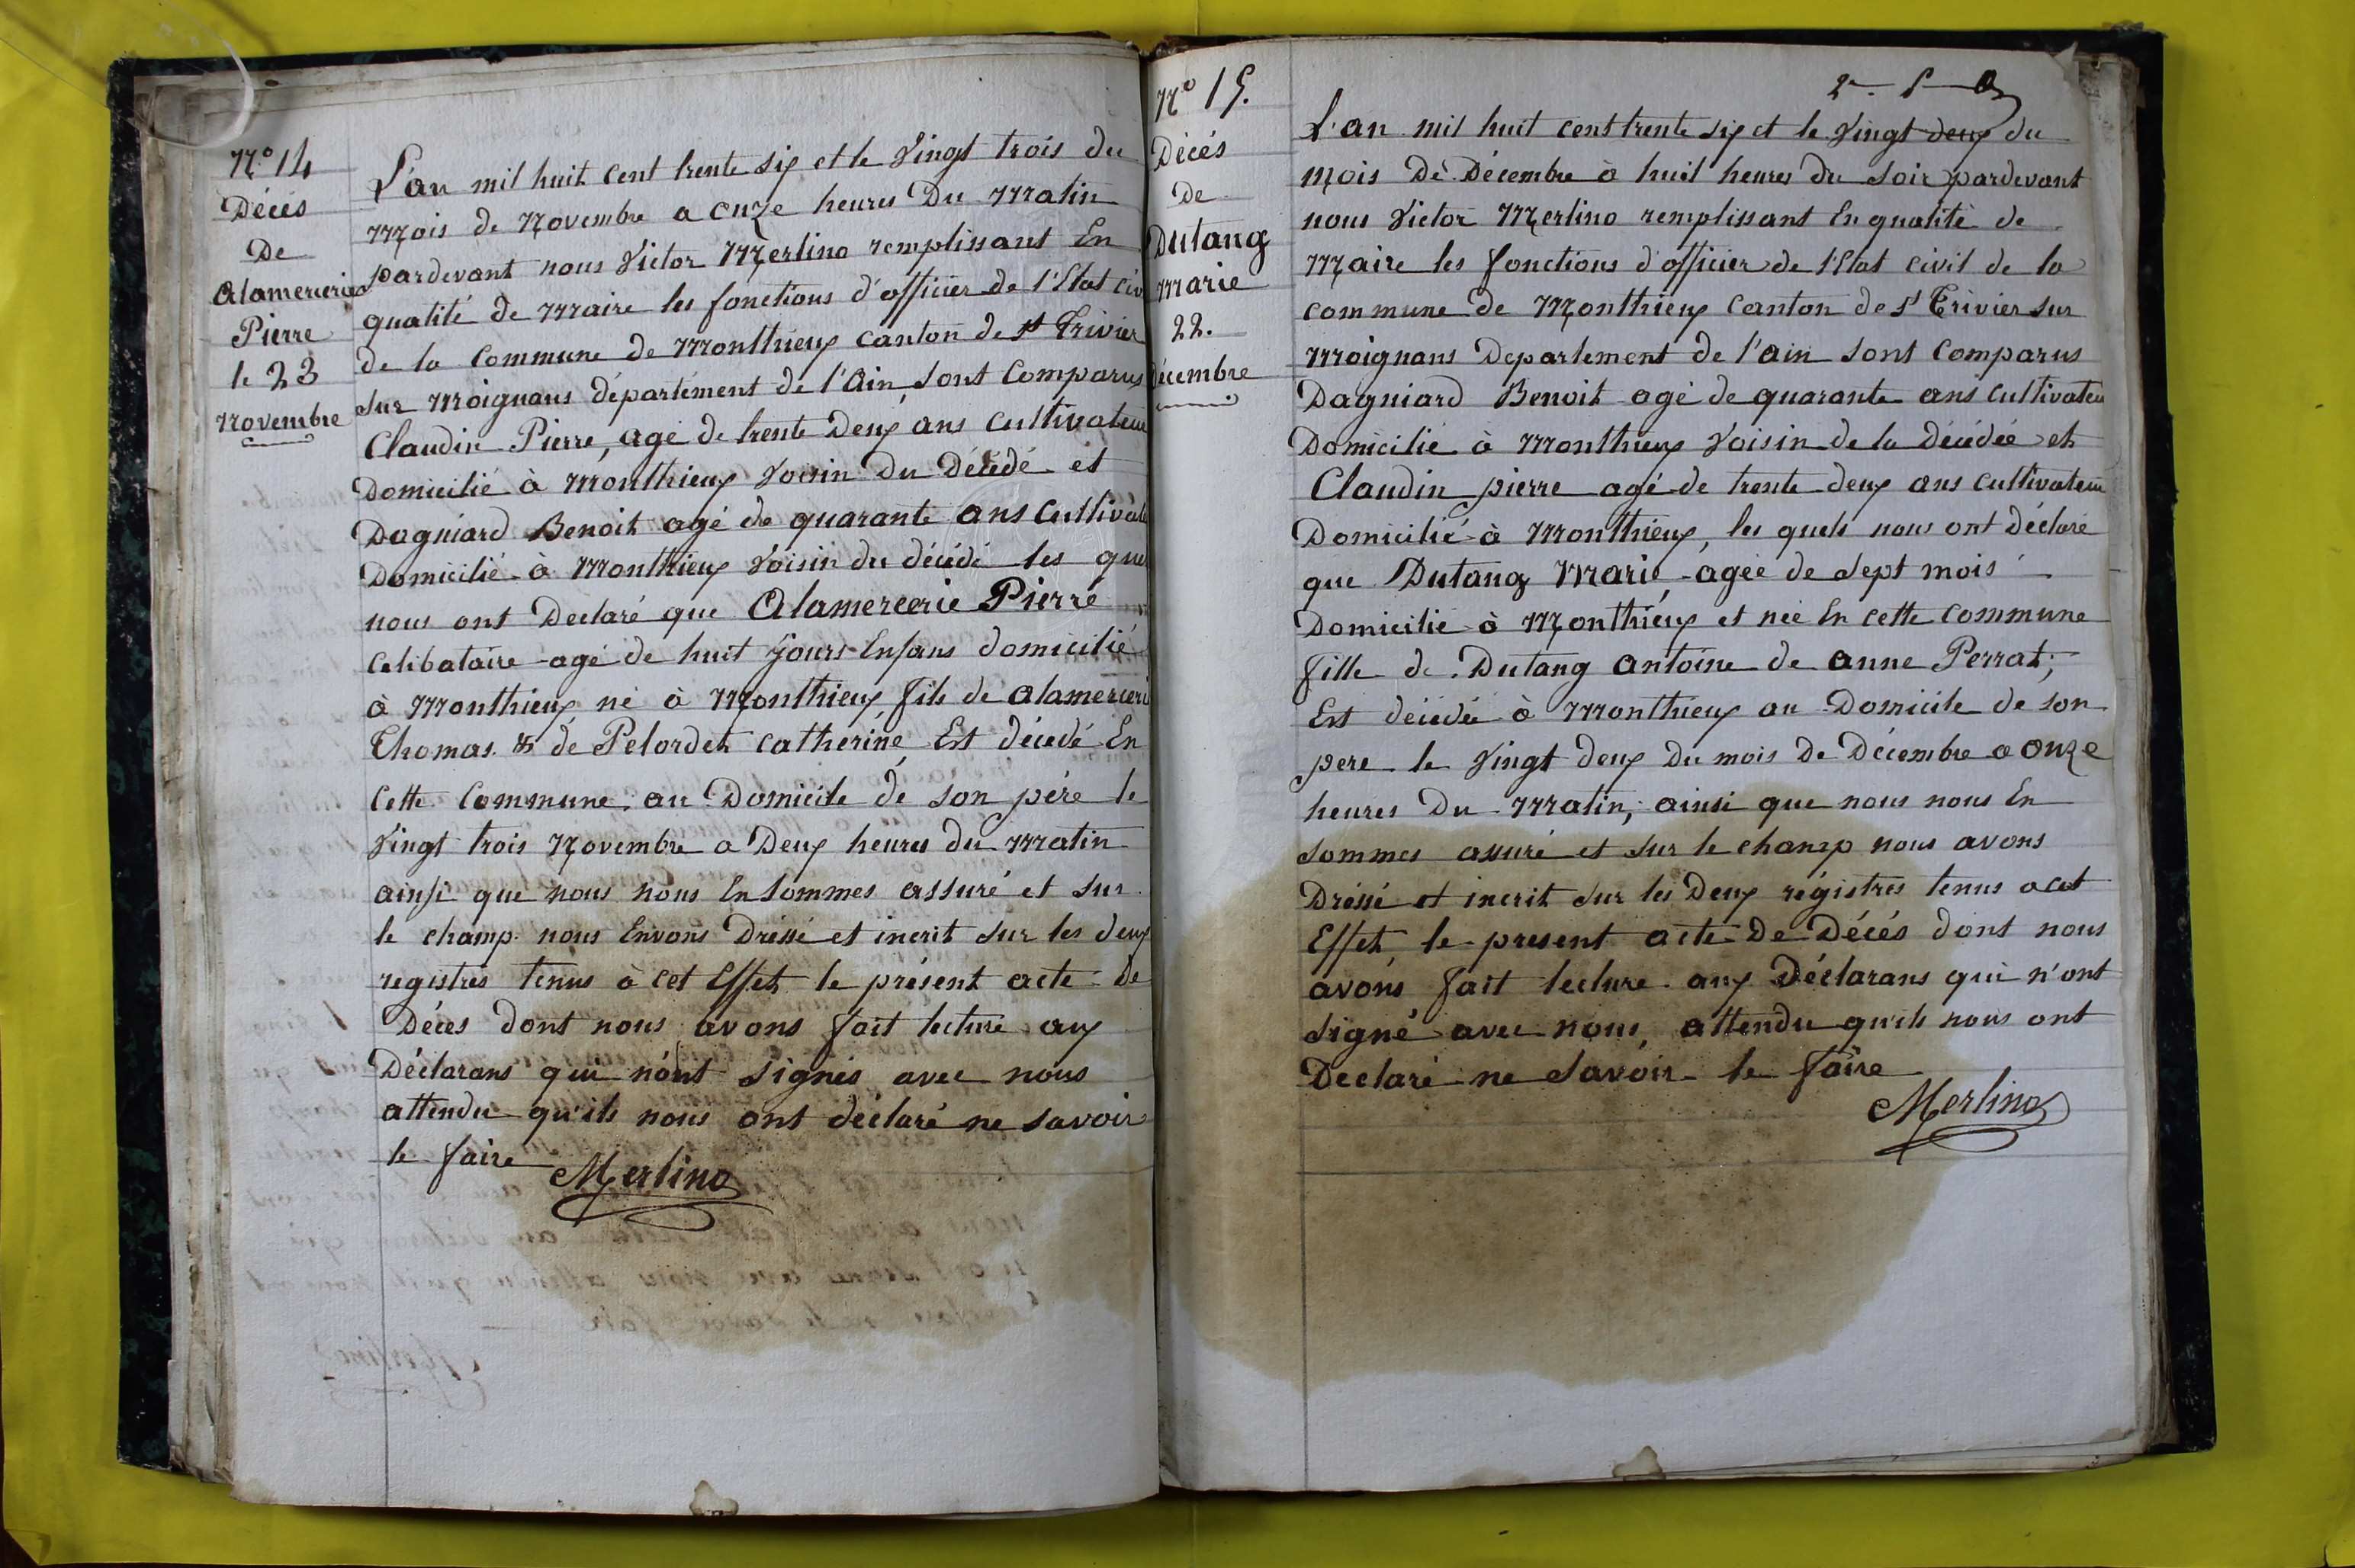 N.o 14
Décès
De
Alamercerie
Pierre
le 23
novembre
L'an mil huit cent trente six et le Vingt trois du
Mois de Novembre a onze heures Du Matin
pardevant nous Victor Merlino remplissant En
qualité de Maire les fonctions d'officier de l'Etat civ
de la Commune de Monthieux canton de st Trivier
sur Moignans département de l'Ain sont Comparus
Claudin Pierre, agé de trente Deux ans Cultivateur
Domicilié à Monthieux Voisin Du Décédé et
Dagniard Benoit agé de quarante ans Cultivate
Domicilié à Monthieux Voisin du décédé les que
nous ont Declaré que Alamercerie Pierre
Celibataire agé de huit jours Enfans domicilié
à Monthieux né à Monthieux fils de alamerceri
Thomas & de Pelordet catherine Est décedé En
cette Commune au Domicile de son père le
Vingt trois Novembre a Deux heures du Matin
ainsi que nous nous En sommes assuré et sur
le champ nous Envons Dréssé et incrit sur les deux
registres tenus à cet Effet le présent acte de
Décès dont nous avons fait lecture aux
Déclarans qui n'ont signés avec nous
attendu qu'ils nous ont déclaré ne savoir
le faire Merlino
N.o 15.
Décés
De
Dutang
Marie
22.
Décembre
L'an mil huit cent trente six et le Vingt deux du
Mois De Décembre à huit heures Du Soir pardevant
nous Victor Merlino remplissant En qualité de
Maire les fonctions d'officier de l'Etat civil de la
commune de Monthieux Canton de st Trivier sur
Moignans Departement de l'ain sont Comparus
Dagniard Benoit agé de quarante ans Cultivateu
Domicilié à Monthieux Voisin de la Décédée et
Claudin pierre agé de trente deux ans cultivateur
Domicilié à Monthieux, les quels nous ont Déclaré
que Dutang Marie, agée de Sept mois
Domicilié à Monthieux et née En cette commune
fille de Dutang antoine de anne Perrat;
Est décedée à Monthieux au Domicile de son
pere le Vingt deux Du mois De Décembre a onze
heures Du Matin, ainsi que nous nous En
sommes assuré et sur le champ nous avons
Dréssé et incrit sur les Deux régistres tenus a cet
Effet, le present acte De Décés dont nous
avons fait lecture aux Déclarans qui n'ont
signé avec nous, attendu qu'ils nous ont
Declaré ne savoir le faire
Merlino